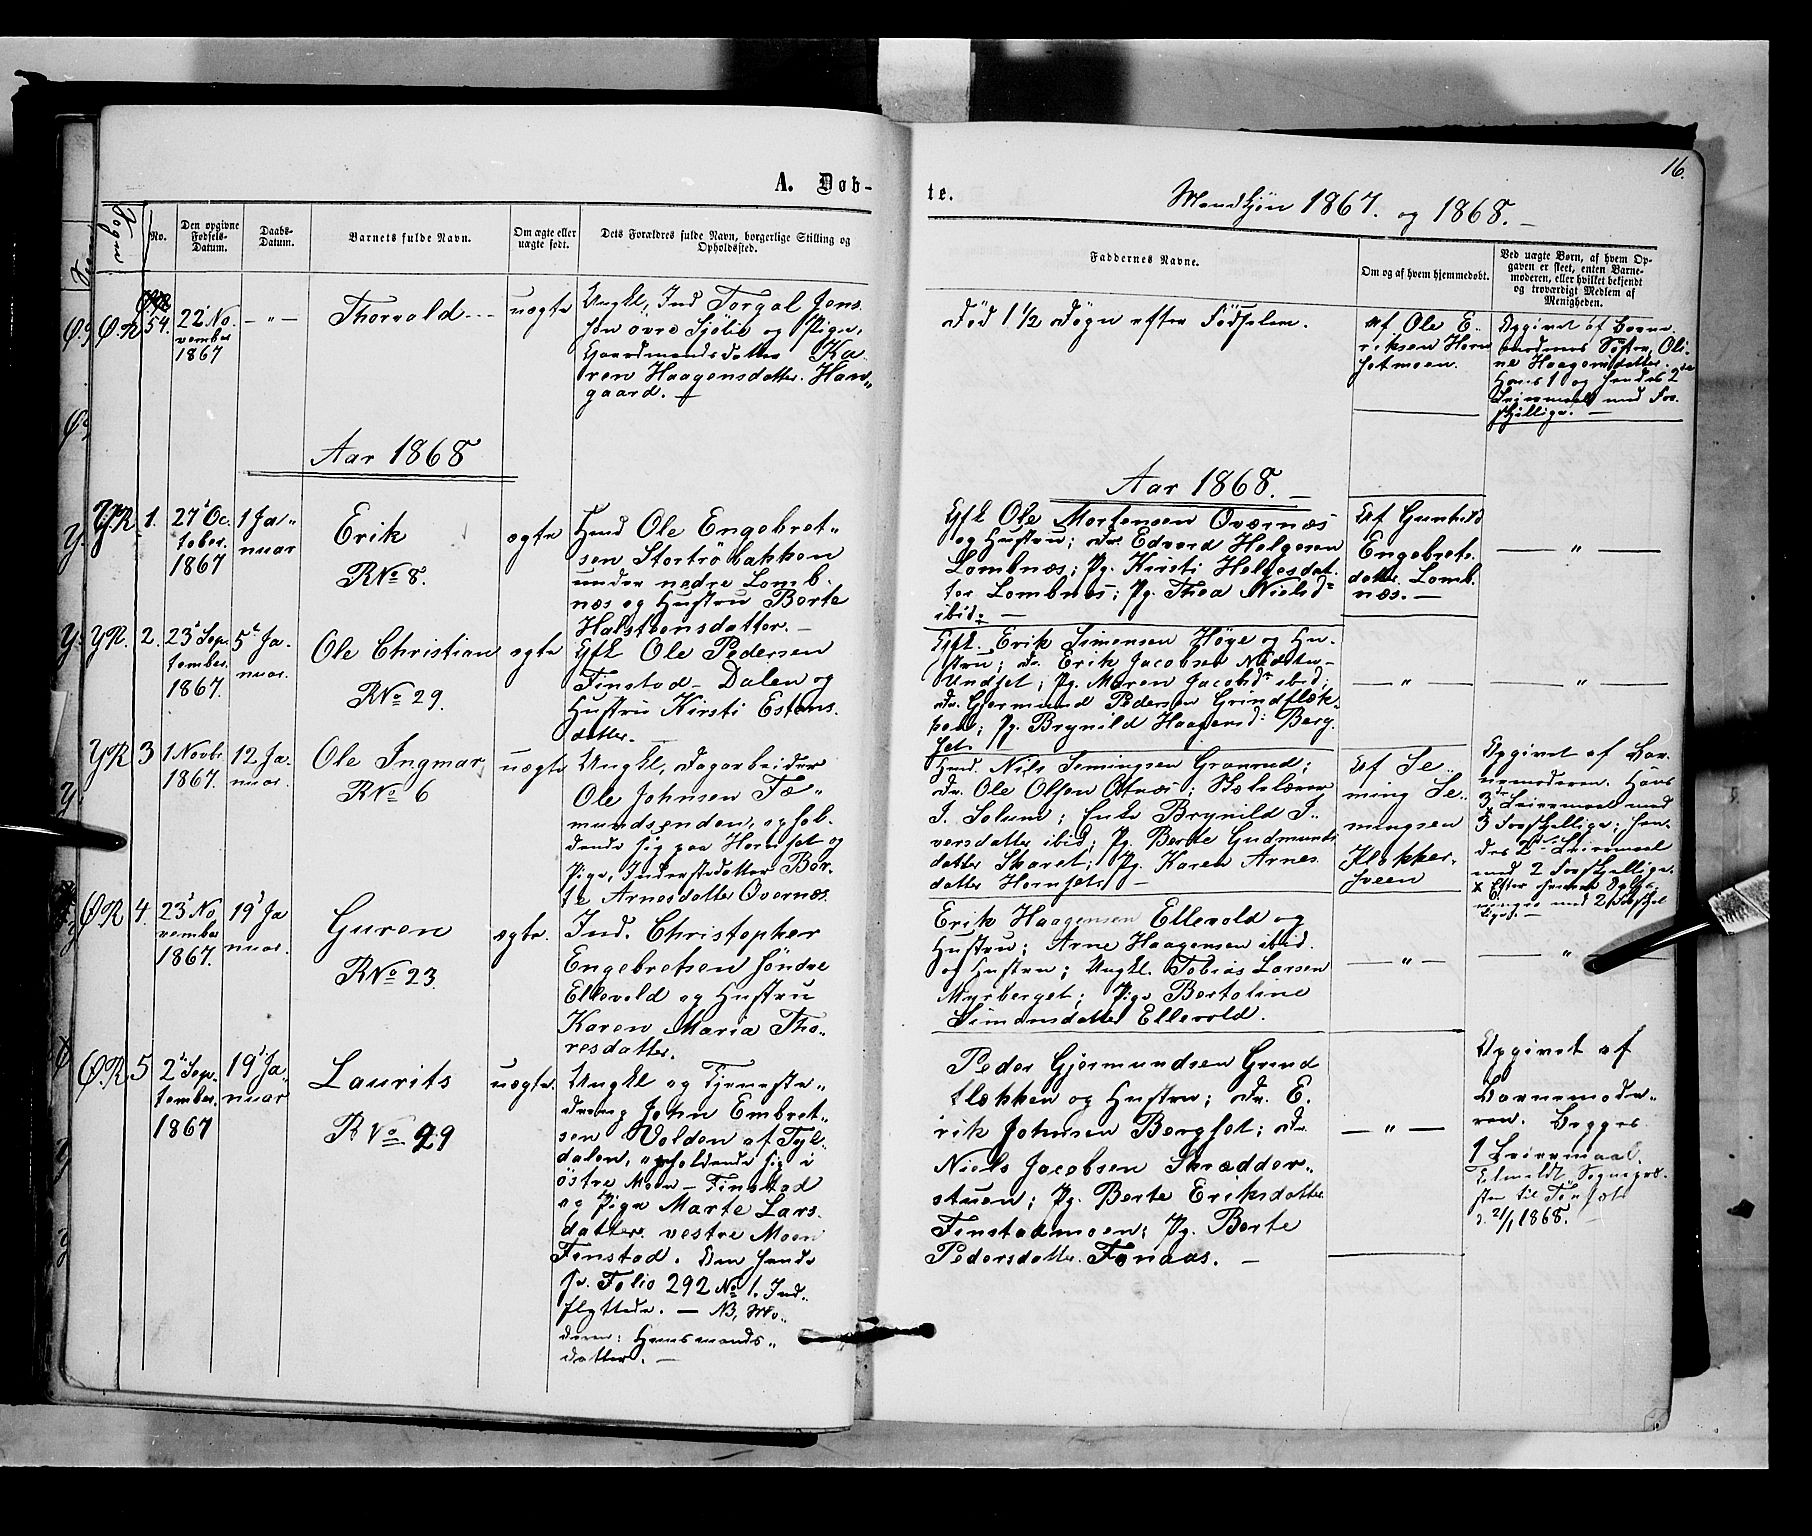 A. Døb-
te.
Mandkjøn 1867. og 1868. —
16.
Sogn
No.
Den opgivne Fødsels-Datum.
Daabs-Datum.
Barnets fulde Navn.
Om ægte eller uægte født.
Dets Forældres fulde Navn, borgerlige Stilling og Opholdssted.
Faddernes Navne.
Om og af hvem hjemmedøbt.
Ved uægte Børn, af hvem Op-
gaven er skeet, enten Barne-
moderen, eller hvilket bekjendt
og troværdigt Medlem af
Menigheden.
ØR
54.
22 No-
vember
1867
— „ —
Thorvald
uægte
Ungkl, Ind Torgal Jens
søn øvre Sjølie og Pige,
Gaardmandsdatter Ka-
ren Haagensdatter Haus-
gaard.
Død 1 1/2 Døgn efter Fødselen.
Af Ole E-
riksen Horn
setmoen.
Opgivet af Barne
moderens Søster Oli-
ne Haagensdatter.
Hans 1 og hendes 2
Leiermaal med For-
skjellige. —
Aar 1868
Aar 1868. —
YR.
1.
27 Oc-
tober.
1867
1 Ja-
nuar
Erik
RNo 8.
ægte
Hmd Ole Engebret-
sen Stortrøbakken
under nedre Lomb-
næs og Hustru Berte
Halstensdatter. —
Gfl Ole Mortensen Overnæs
og Hustru; Dr. Edvard Helgesen
Lombnæs; Pg. Kirsti Helgesdat-
ter Lombnæs; Pg. Thea Nielsdr
ibid. —
Af Gunhild
Engebrets-
datter Lomb-
næs. —
— „ —
YR.
2.
23 Sep-
tember.
1867.
5 Ja-
nuar.
Ole Christian
RNo 29.
ægte
Gfl Ole Pedersen
Finstad-Dalen og
Hustru Kirsti Estens-
datter. —
Gfl. Erik Simensen Høye og Hu-
stru; Dr. Erik Jacobsen Nedster-
Undset; Pg. Maren Jacobsdr ibid;
Dr. Gjermund Pedersen Grindflæk-
ken; Pg. Brynild Haagensd: Berg-
set. —
— „ —
— „ —
YR
3
1 Novbr
1867.
12 Ja-
nuar.
Ole Ingmar
RNo 6
uægte
Ungkl, Dagarbeider
Ole Johnsen Fæ-
mundsenden, ophol-
dende sig paa Hornset og
Pige, Inderstedatter Ber-
te Arnesdatter Overnæs
Hmd. Nils Semingsen Granrud;
Dr. Ole Olsen Otnes; Skolelærer
I. Solum; Enke Brynild I-
versdatter ibid; Pg. Berte Gudmunds
datter Skaret; Pg. Karen Arnes
datter Hornset. —
Af Se-
ming Se-
mingsen
Klokker-
sveen
Opgivet af Bar-
nemoderen. Hans
3 Leiermaal med
3 Forskjellige; hen-
des 2 Leiermaal
med 2 Forskjellige.
ØR
4.
23 No
vember
1867.
19 Ja
nuar.
Guren
RNo 23
ægte.
Ind. Christopher
Engebretsen søndre
Ellevold og Hustru
Karen Maria Tho-
resdatter.
Erik Haagensen Ellevold og
Hustru; Arne Haagensen ibid.
og Hustru; Ungkl. Tobias Larsen
Myrberget; Pige Bertoline
Simensdatter Ellevold.
— „ —
— „ —
Ø.R.
5
2 Sep-
tember.
1867
19 Ja-
nuar
Laurits
RNo 29
uægte.
Ungkl og Tjeneste-
dreng John Embret-
sen Volden af Tyl-
dalen, opholdende sig i
østre Moen-Finstad
og Pige Marte Lars-
datter vestre Moen
Finstad. Om hende
se Folio 292 No 1. Ind-
flyttede. — NB, Mo-
deren: Husmands-
datter. —
Peder Gjermundsen Grind
flækken og Hustru; Dr. E-
rik Johnsen Bergset; Dr
Niels Jacobsen Skrædder-
stuen; Pg. Berte Eriksdatter
Finstadmoen; Pg. Berte
Pedersdatter Fonaas. —
— „ —
Opgivet af
Barnemode-
ren. Begges
1 Leiermaal.
Tilmeldt Sognepræ-
sten til Tønset
d. 21/1 1868. —